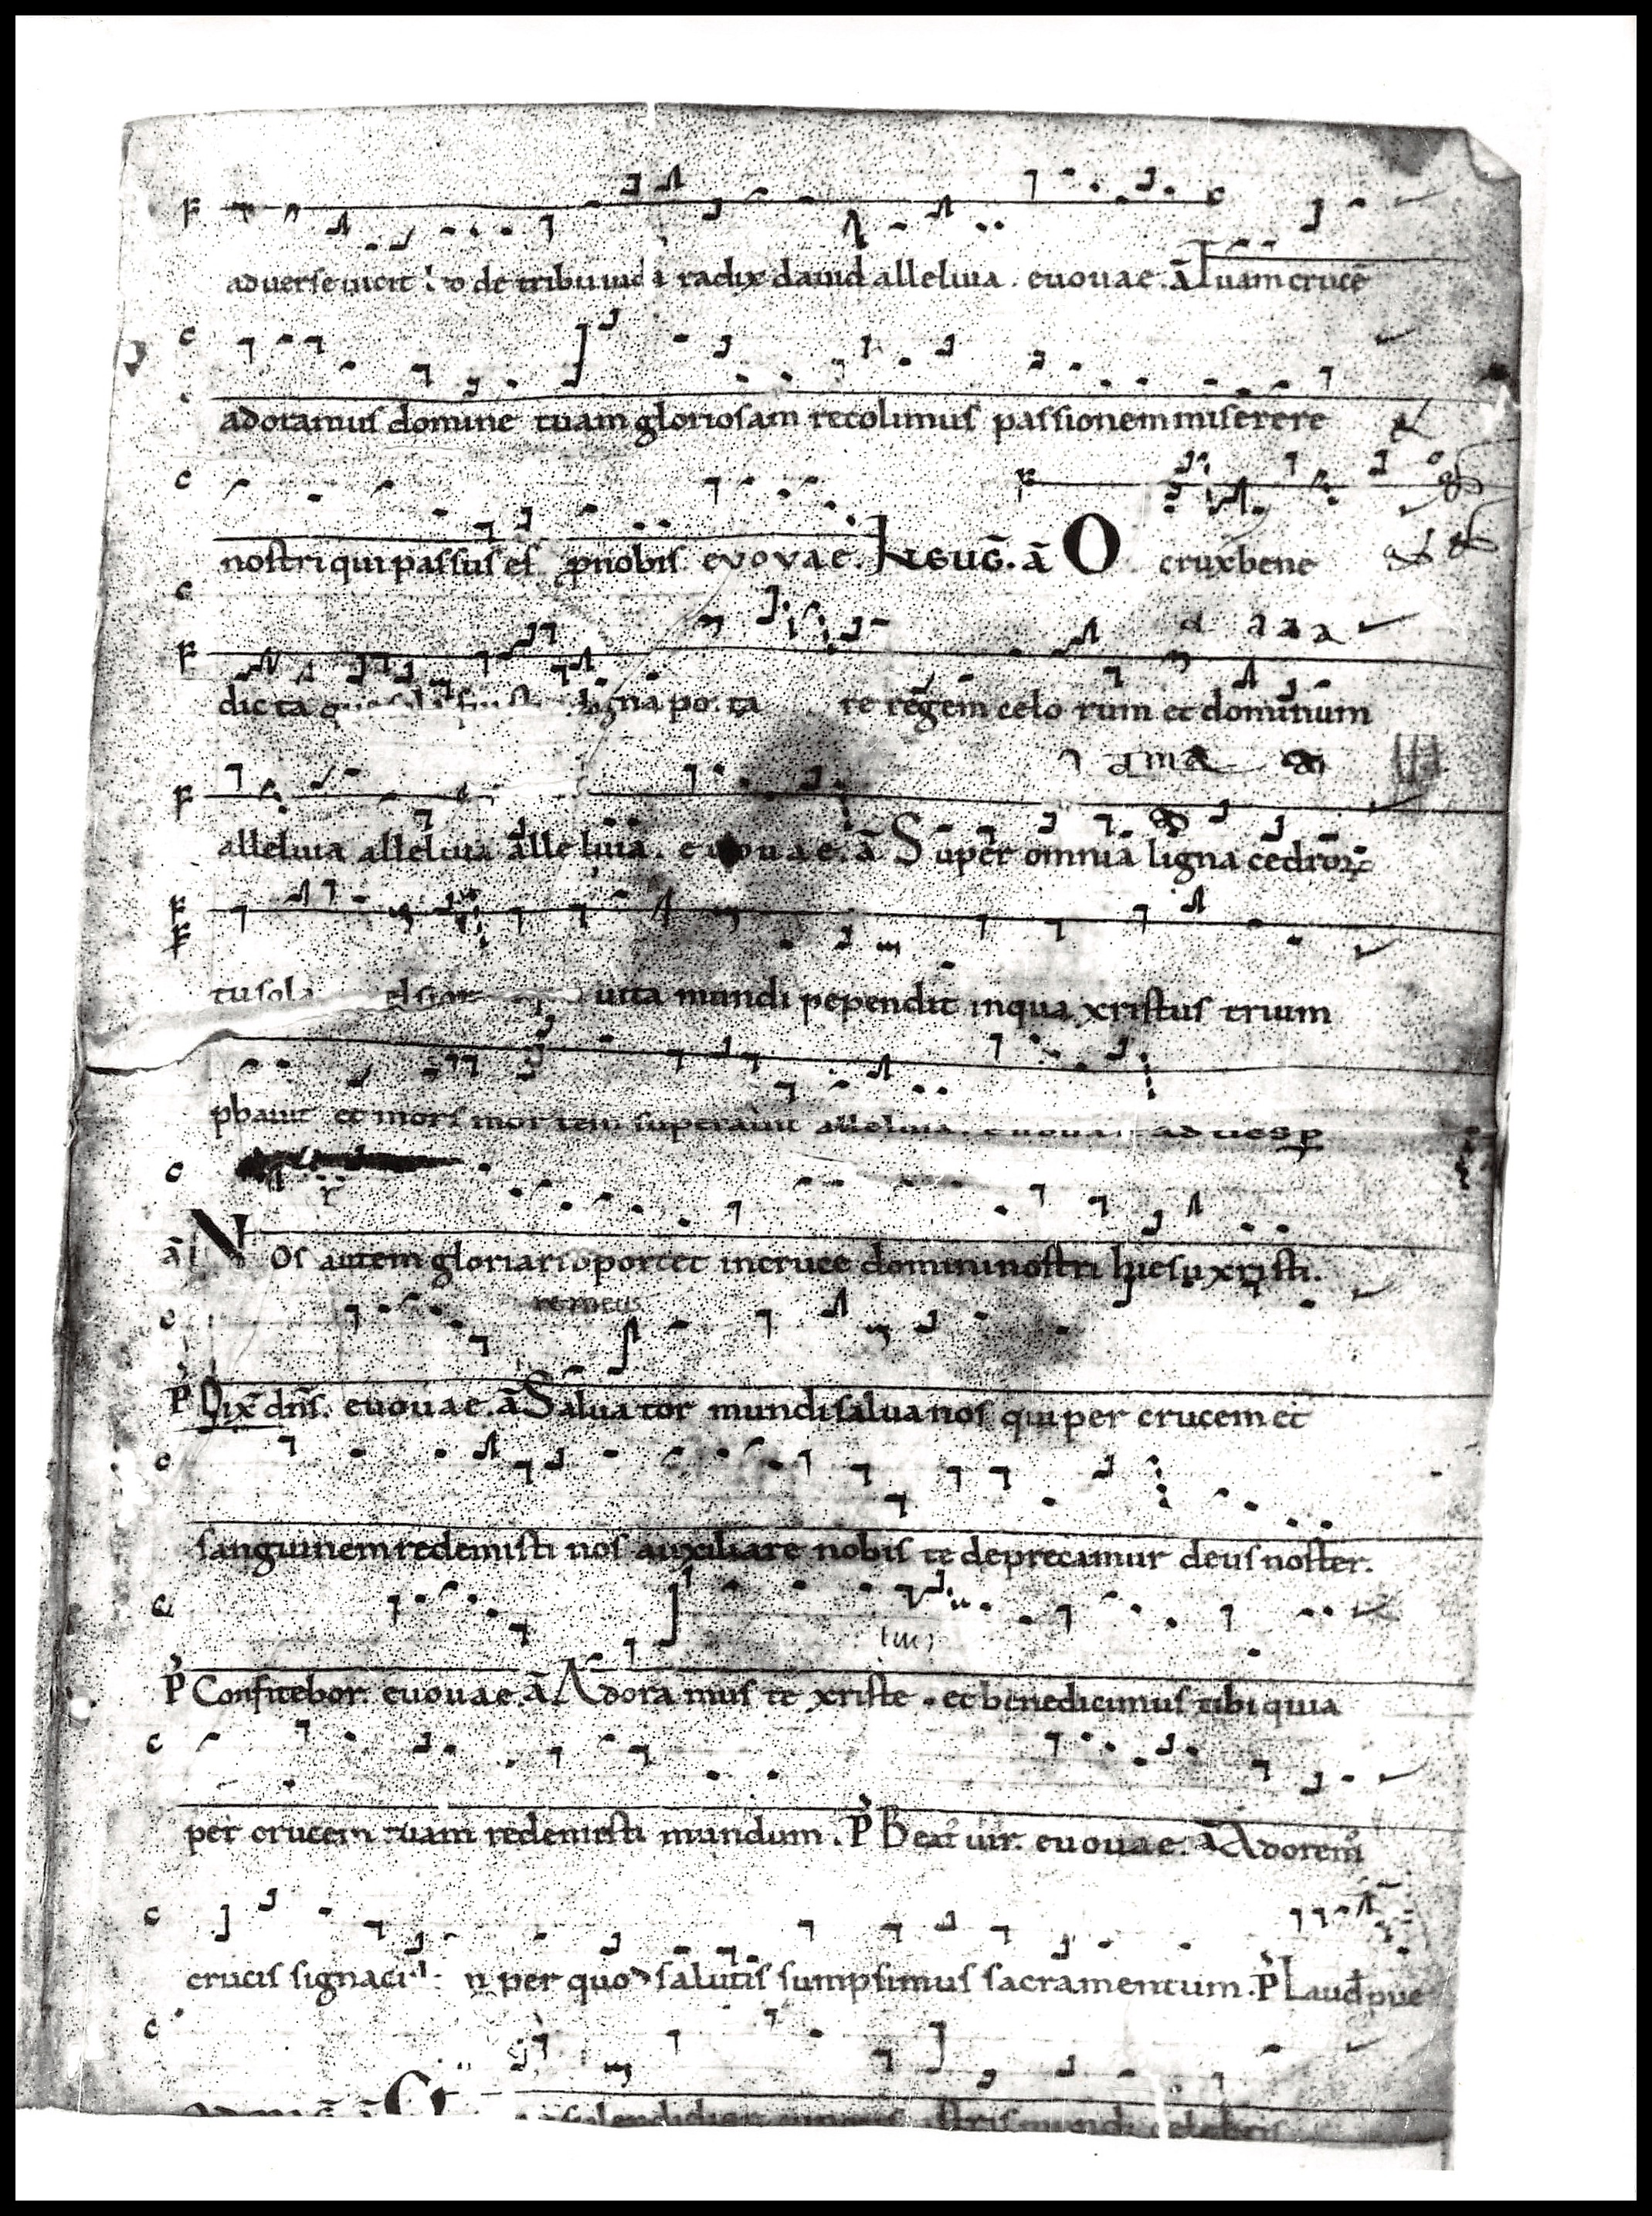 aduerse uicit de tribu iuda radix dauid alleluia. euouae. ā Tuam crucē
adoramus domine tuam gloriosam recolimus passionem miserere
nostri qui passus es pnobis. evovae. ā O crux bene
dicta ligna porta re regem celo rum et dominum
alleluia alleluia alleluia. euouae. ā Super omnia ligna cedroꝝ
tu sola elsior uita mundi pependit in qua xristus trium
phauit et mors mortem superauit alleluia. euouae ad uesp
ā Nos autem gloriari oportet in cruce domini nostri hiesu xristi.
P Dix̄ dn̄s. euouae. ā Saluator mundi salua nos qui per crucem et
sanguinem redemisti nos auxiliare nobis te deprecamur deus noster.
P Confitebor. euouae. ā Adoramus te xriste. et benedicimus tibi quia
per crucem tuam redemisti mundum. P Beat' uir. euouae. ā Adorem'
crucis signacu per quod salutis sumpsimus sacramentum. P Laud pue
splendidior astris mundo celebris